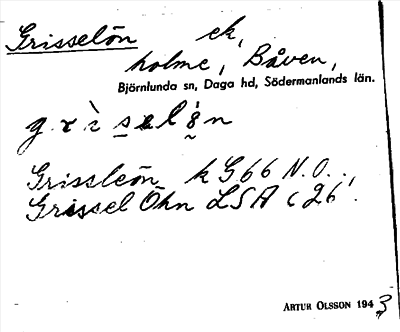 Grisselön ek,
holme, Båven,
Björnlunda sn, Daga hd, Södermanlands län.
Grissleön k G66 N.O..,
Grissel Öhn LSA c 26.
ARTUR OLSSON 1943